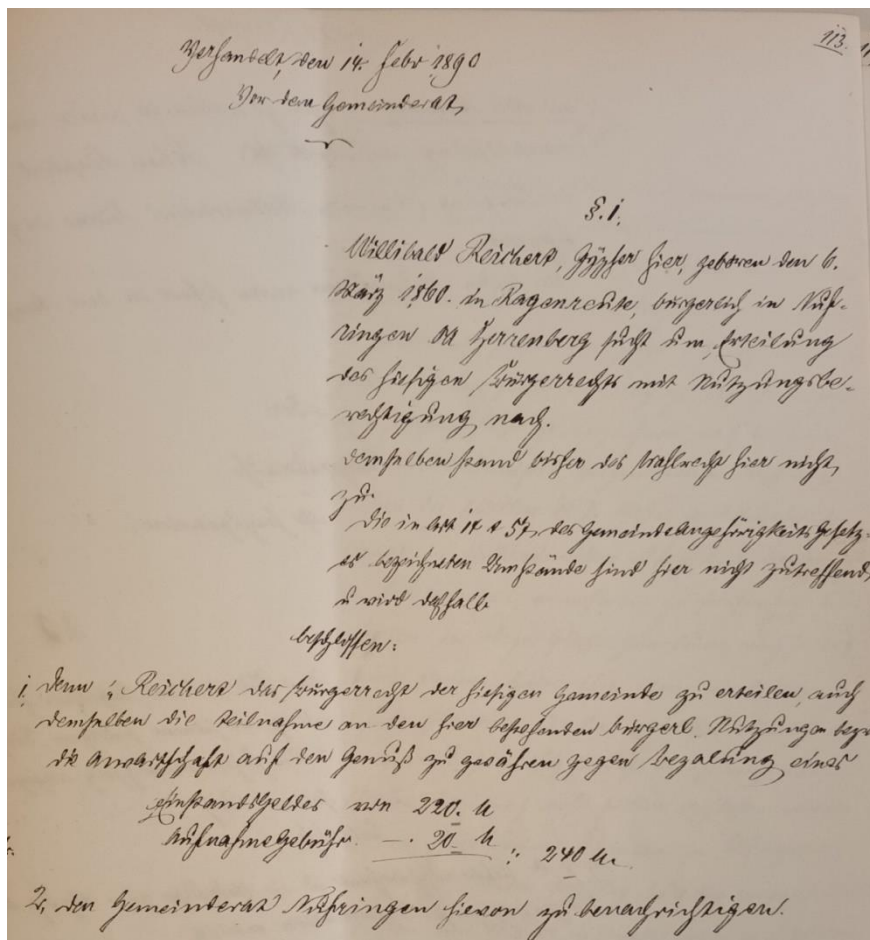 113.
Verhandelt, den 14. Febr 1890
Vor dem Gemeinderat,
§. 1.
Willibald Reichert, Gypser hier, geboren den 6.
März 1860. in Ragenreute, bürgerlich in Nuf-
ringen OA Herrenberg sucht um Erteilung
des hiesigen Bürgerrechts mit Nutzungsbe-
rechtigung nach.
Demselben stand bisher das Wahlrecht hier nicht
zu.
Die in Art 14 & 57 des Gemeindeangehörigkeits Gesetz-
es bezeichneten Umstände sind hier nicht zutreffend,
u wird deßhalb
beschlossen:
1, Dem Reichert das Bürgerrecht der hiesigen Gemeinde zu erteilen, auch
demselben die Teilnahme an den hier bestehenden bürgerl. Nutzungen bezw
die Anwartschaft auf den Genuß zu gewähren gegen Bezalung eines
Einstandsgeldes von 220. M
Aufnahmegebühr — . 20 M : 240 M.
2, den Gemeinderat Nufringen hievon zu benachrichtigen.